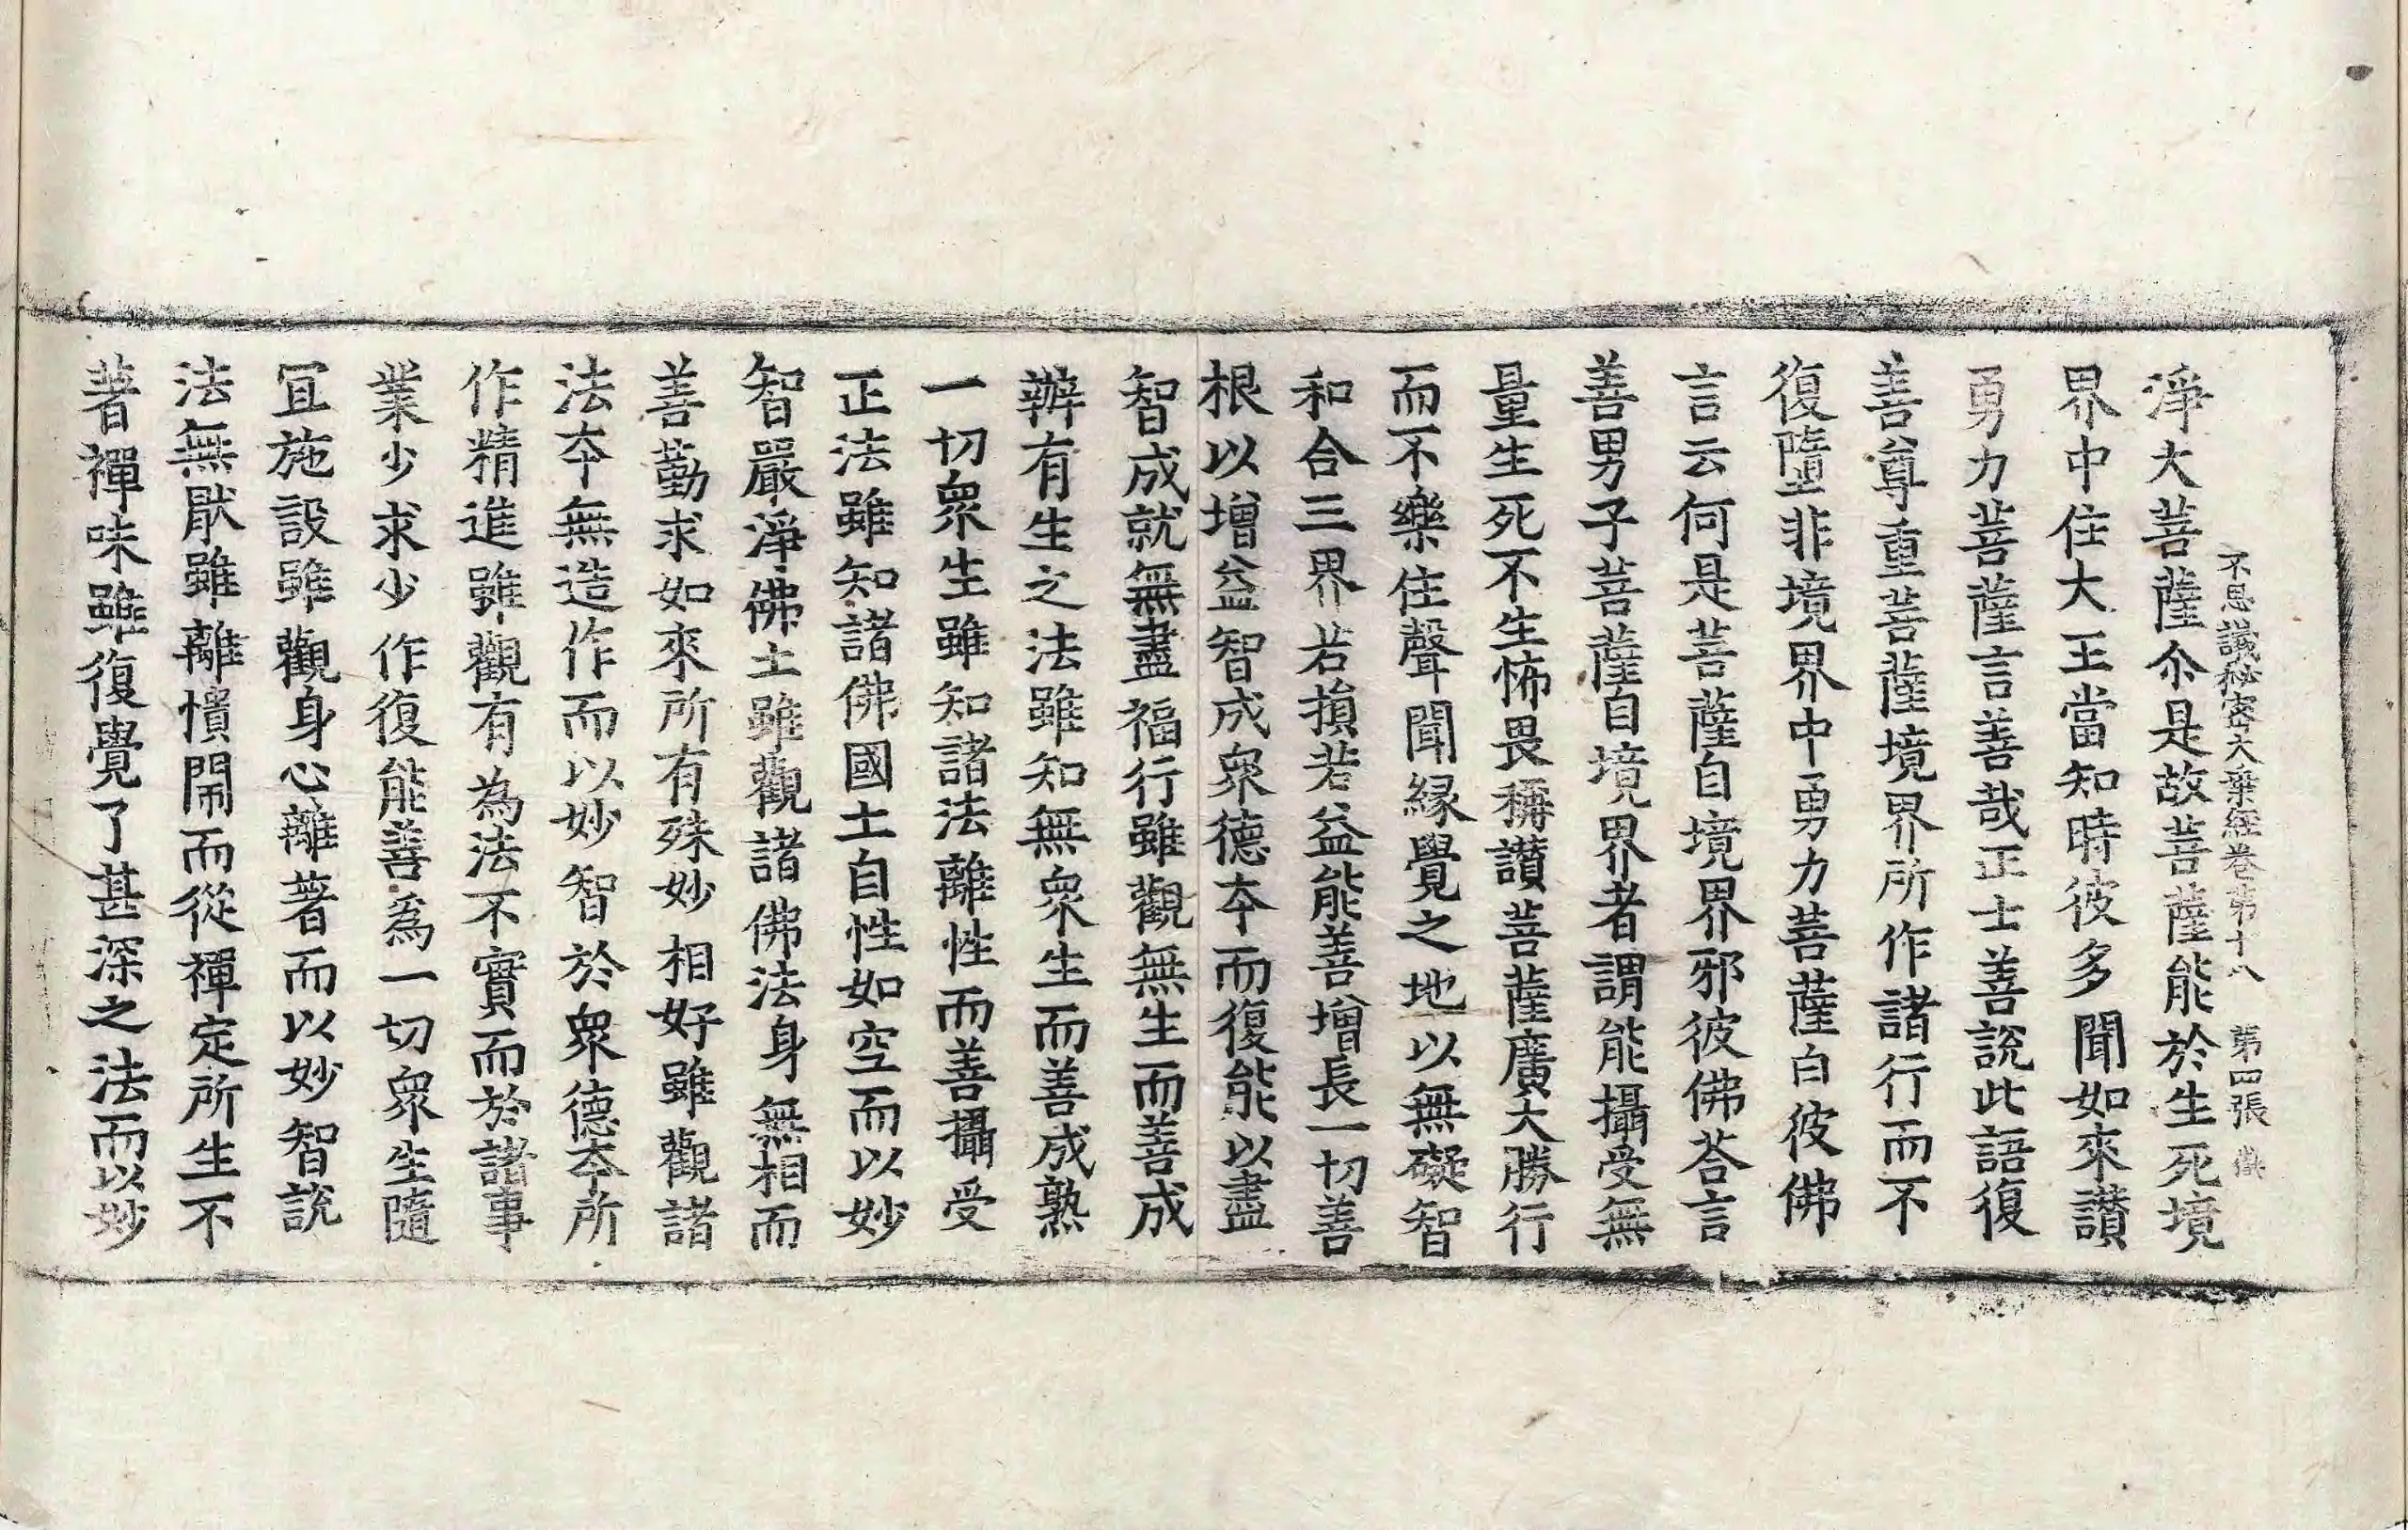 不思議秘密大乗經卷第十八 第四張
淨大菩薩尒是故菩薩能於生死境
界中住大王當知時彼多聞如來讃
勇力菩薩言善哉正士善說此語復
善尊重菩薩境界所作諸行而不
復墮非境界中勇力菩薩白彼佛
言云何是菩薩自境界邪彼佛荅言
善男子菩薩自境界者謂能攝受無
量生死不生怖畏稱讃菩薩廣大勝行
而不樂住聲聞緣覺之地以無礙智
和合三界若損若益能善增長一切善
根以增益智成衆德夲而復能以盡
智成就無盡福行雖觀無生而善成
辦有生之法雖知無衆生而善成熟
一切衆生雖知諸法離性而善攝受
正法雖知諸佛國土自性如空而以妙
智嚴淨佛土雖觀諸佛法身無相而
善勤求如來所有殊妙相好雖觀諸
法夲無造作而以妙智於衆德夲所
作精進雖觀有為法不實而於諸事
業少求少作復能善為一切衆生隨
冝施設雖觀身心離著而以妙智說
法無猒雖離憒閙而從禪定所生不
著禪味雖復覺了甚深之法而以妙